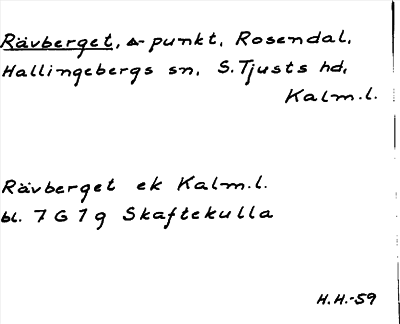 Rävberget, △-punkt, Rosendal,
Hallingebergs sn, S. Tjusts hd,
Kalm.l.
Rävberget ek Kalm.l.
bl. 7 G 7 g Skaftekulla
H.H.-59